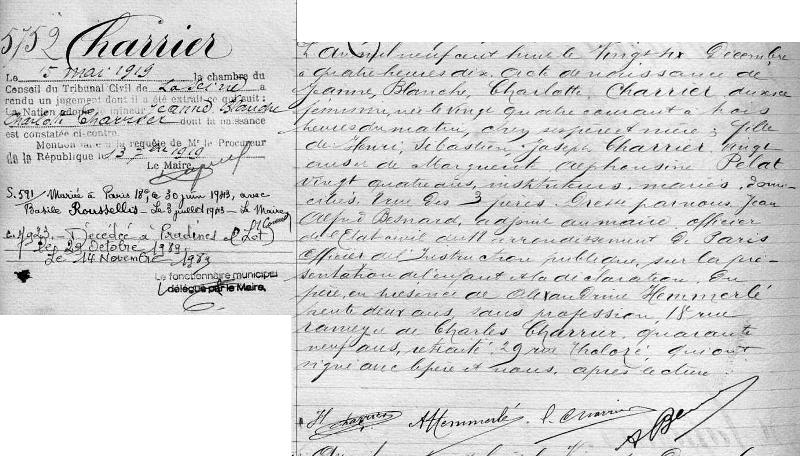 5752 Charrier
Le 15 mai 1919 la chambre du
Conseil du Tribunal Civil de La Seine a
rendu un jugement dont il a été extrait ce qui suit :
La Nation adopte la mineure Jeanne Blanche
Charlotte Charrier dont la naissance
est constatée ci-contre.
Mention faite à la requête de Mr le Procureur
de la République le 1919
Le Maire,
S. 591 Mariée à Paris 18e, le 30 juin 1943, avec
Basile Roussellis - Le 3 juillet 1943 - Le Maire
Décédée à Pradines (Lot)
le 29 Octobre
Le 14 Novembre
Le fonctionnaire municipal
délégué par le Maire,
L'an mil neuf cent le vingt six Décembre
à quatre heures dix. Acte de naissance de
Jeanne, Blanche, Charlotte Charrier du sexe
féminin, née le vingt quatre courant à trois
heures du matin, chez ses père et mère ; fille
de Henri, Sébastien, Joseph Charrier vingt
ans et de Marguerite Alphonsine Pélat
vingt quatre ans, instituteurs, mariés, domi-
ciliés, rue des 3 frères. Dressé par nous, Jean
Alfred Besnard, adjoint au maire officier
de l'Etat civil du arrondissement de Paris
Officier de l'Instruction publique, sur la pré-
sentation de l'enfant et la déclaration du
père, en présence de Alexandrine Hemmerlé
trente deux ans, sans profession, 18 rue
ramey et de Charles Charrier, quarante
neuf ans, retraité, 29 rue Tholozé, qui ont
signé avec le père et nous, après lecture.
H Charrier A Hemmerlé C. Charrier